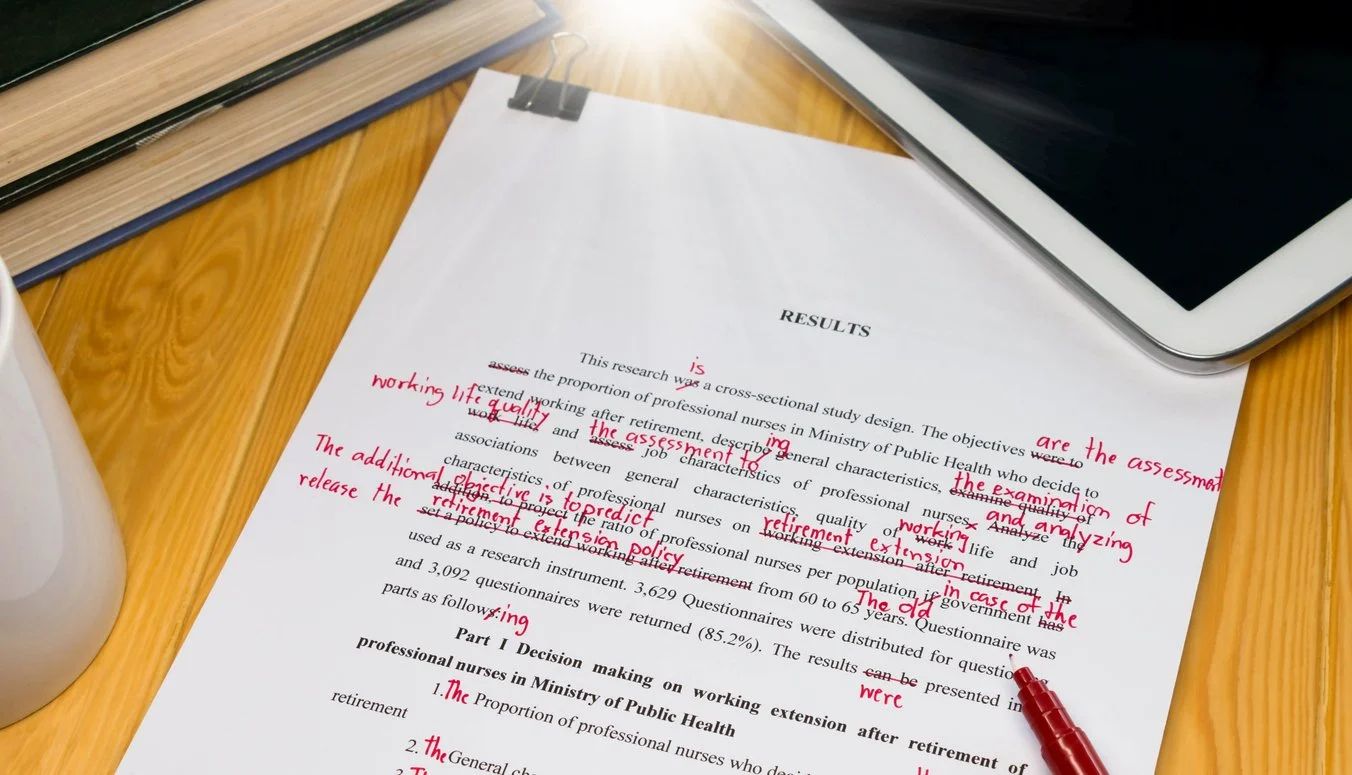 RESULTS
is
This research was a cross-sectional study design. The objectives were to
are the assessment
assess the proportion of professional nurses in Ministry of Public Health who decide to
working life quality
ing
extend working after retirement, describe general characteristics, examine quality of
the examination of
the assessment to
work life and assess job characteristics of professional nurses. Analyze the
and analyzing
working
associations between general characteristics, quality of work life and job
The additional objective is to predict
retirement extension
characteristics of professional nurses on working extension after retirement. In
in case of the
addition, to project the ratio of professional nurses per population if government has
release the retirement extension policy
The old
set a policy to extend working after retirement from 60 to 65 years. Questionnaire was
used as a research instrument. 3,629 Questionnaires were distributed for
and 3,092 questionnaires were returned (85.2%). The results can be presented in
were
parts as follows:
ing
Part I Decision making on working extension after retirement of
professional nurses in Ministry of Public Health
1. The Proportion of professional nurses who
retirement
2. the General